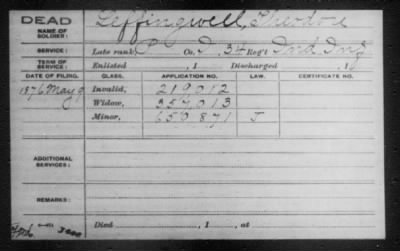 DEAD Leffingwell, Theodore
NAME OF SOLDIER:
SERVICE: Late rank P Co. I, 34 Reg't Ind. Inf
TERM OF SERVICE: Enlisted , 1 Discharged , 1
DATE OF FILING. CLASS. APPLICATION NO. LAW. CERTIFICATE NO.
1876 May 9 Invalid, 219,012
Widow, 357,013
Minor, 650,871 J
ADDITIONAL SERVICES:
REMARKS:
Died , 1 , at